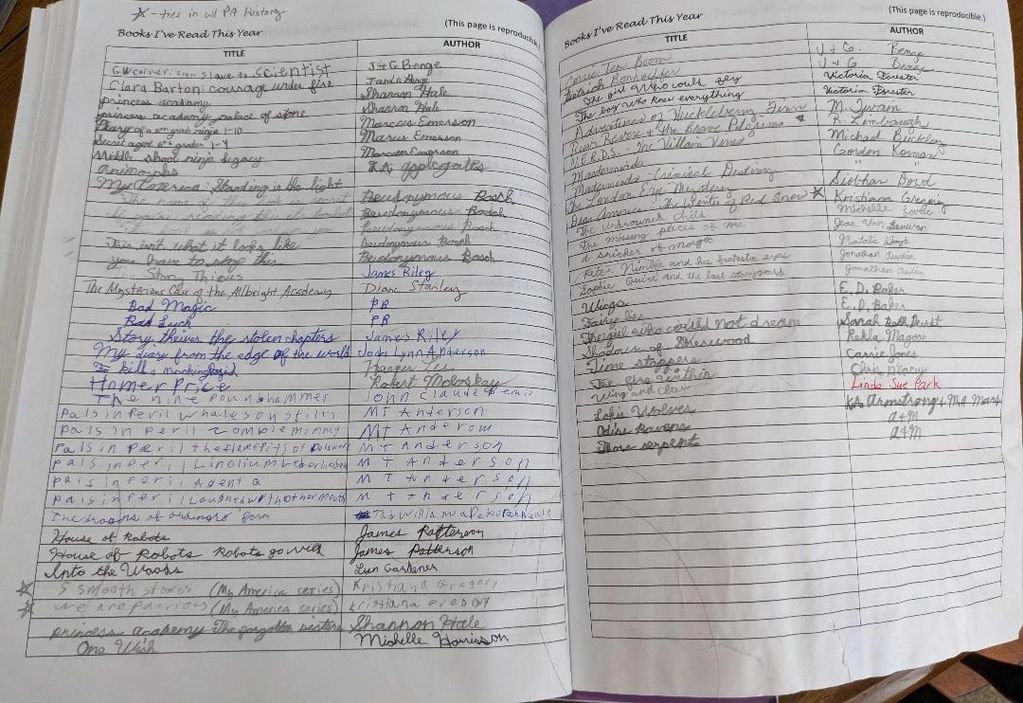 ☆ - ties in w/ PA History
(This page is reproducible.)
Books I've Read This Year
TITLE AUTHOR
GWCarver: from slave to scientist J+G Benge
Clara Barton: courage under fire
princess academy Shannon Hale
princess academy palace of stone Shannon Hale
Diary of a 6th grade ninja 1-10 Marcus Emerson
Secret agent 6th grader 1-4 Marcus Emerson
Middle shool ninja legacy Marcus Emerson
animorphs KA applegates
Standing in the light
The name of this book is secret Pseudonymous Bosch
If you're reading this it's too late Pseudonymous Bosch
Pseudonymous Bosch
This isn't what it looks like Pseudonymous Bosch
you have to stop this Pseudonymous Bosch
Story Thieves James Riley
The Mysterious Case of the Allbright Academy Diane Stanley
Bad Magic PB
Bad Luck PB
Story theives the stolen chapters James Riley
My diary from the edge of the world Jodi Lynn Anderson
To kill a mockingbird Harper Lee
Homer Price Robert Mcloskey
The nine pound hammer John Claude Bemis
Pals in Peril Whales on stilts MT Anderson
pals in peril zombie mommy MT Anderson
Pals in Peril the flame pits of MT Anderson
pals in peril MT Anderson
pals in peril Agent Q MT Anderson
pals in peril Laughed with Other Mouth MT Anderson
The dragons of ordinary farm
House of Robots James Patterson
House of Robots Robots go wild James Patterson
Into the Woods Lyn Gardener
☆ 5 smooth stones (My America series) Kristiana Gregory
☆ we are patriots (My America series) Kristiana Gregory
princess academy The forgotten sisters Shannon Hale
One Wish Michelle Harrison
(This page is reproducible.)
Books I've Read This Year
TITLE AUTHOR
Corrie Ten Boom J + G. Benge
Dietrich Bonhoeffer J + G Benge
The girl who could fly Victoria Forester
The boy who knew everything Victoria Forester
Adventures of Huckleberry Finn M. Twain
Rush Revere + the Brave Pilgrims R. Limbaugh
N.E.R.D.S. - The Villain Virus Michael Buckley
Masterminds Gordon Korman
Masterminds: Criminal Destiny "
The London Eye Mystery Siobhan Dowd
Dear America: The Winter of Red Snow ☆ Kristiana Gregory
The Unbrownk child
The missing pieces of me Jean Van Leeuwen
a snicker of magic Natalie Lloyd
Peter Nimble and his fantastic eyes Jonathan Auxier
Sophie Quire and the last storyguard Jonathan Auxier
Wings E. D. Baker
Fairy lies E. D. Baker
The girl who could not dream Sarah Beth Durst
Shadows of Sherwood Kekla Magoon
Time stoppers Carrie Jones
The fire within Chris D'lacy
Wing and claw Linda Sue Park
Lokis Wolves KA Armstrong + MA Marr
Odins Ravens A+M
Thors serpents A+M